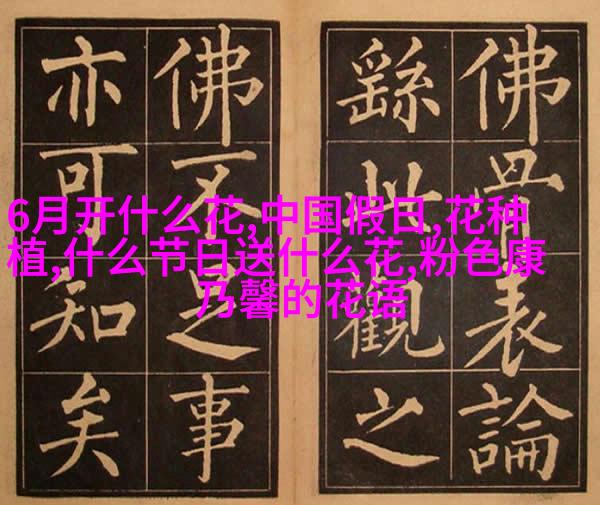 6月开什么花,中国假日,花种
植,什么节日送什么花,粉色康
乃馨的花语
佛骨表論
繇此觀之
佛不足事
亦可知矣